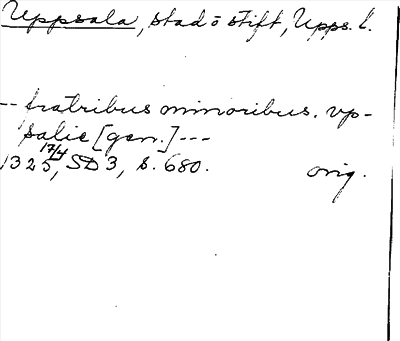 Uppsala, stad o stift, Upps. l.
-- fratribus minoribus. vp-
salie [gen.] ---
17/4
1325, SD 3, s. 680. orig.